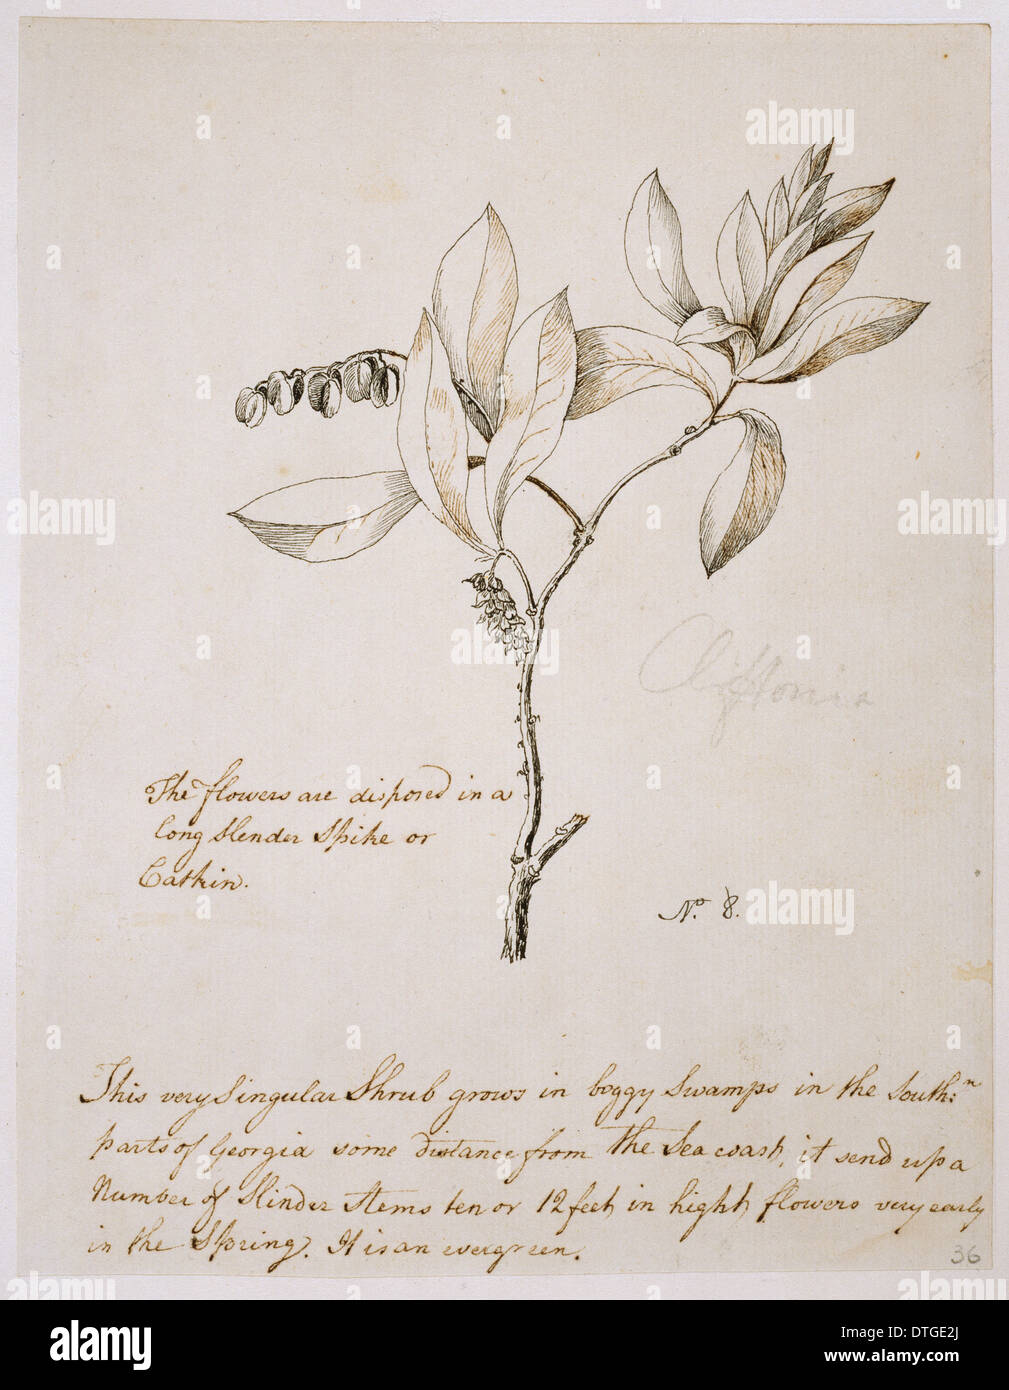 Cliftonia
The flowers are disposed in a
long slender Spike or
Catkin.
No. 8.
This very Singular Shrub grows in boggy Swamps in the South:n
parts of Georgia some distance from the Sea coast, it send up a
Number of Slinder Stems ten or 12 feet in hight, flowers very early
in the Spring. It is an evergreen.
36
alamy
Image ID: DTGE2J
www.alamy.com